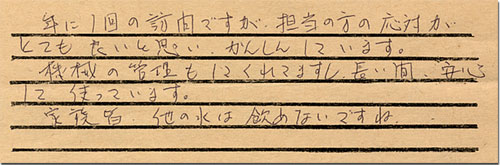 年に1回の訪問ですが、担当の方の応対が
とても良いと思い、かんしんしています。
機械の管理もしてくれてますし、長い間、安心
して使っています。
家族皆、他の水は飲めないですね。